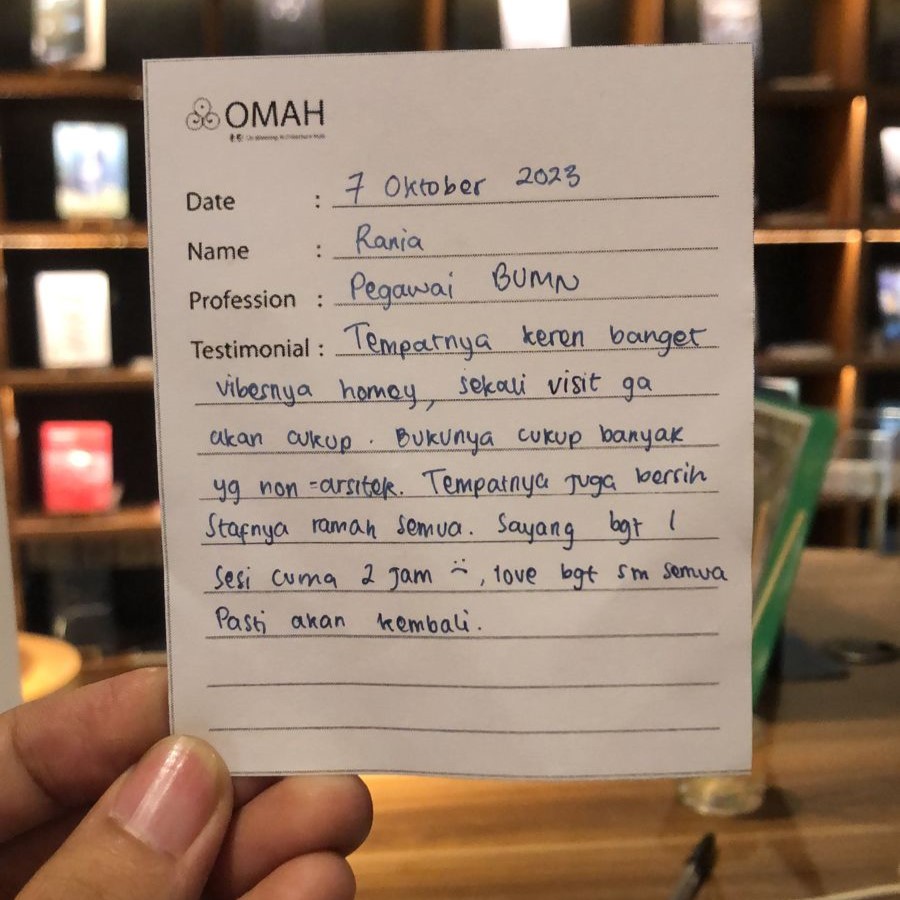 OMAH
Date : 7 Oktober 2023
Name : Rania
Profession : Pegawai BUMN
Testimonial : Tempatnya keren banget
vibesnya homey, sekali visit ga
akan cukup. Bukunya cukup banyak
yg non-arsitek. Tempatnya juga bersih
Stafnya ramah semua. Sayang bgt 1
sesi cuma 2 jam :(, love bgt sm semua
Pasti akan kembali.